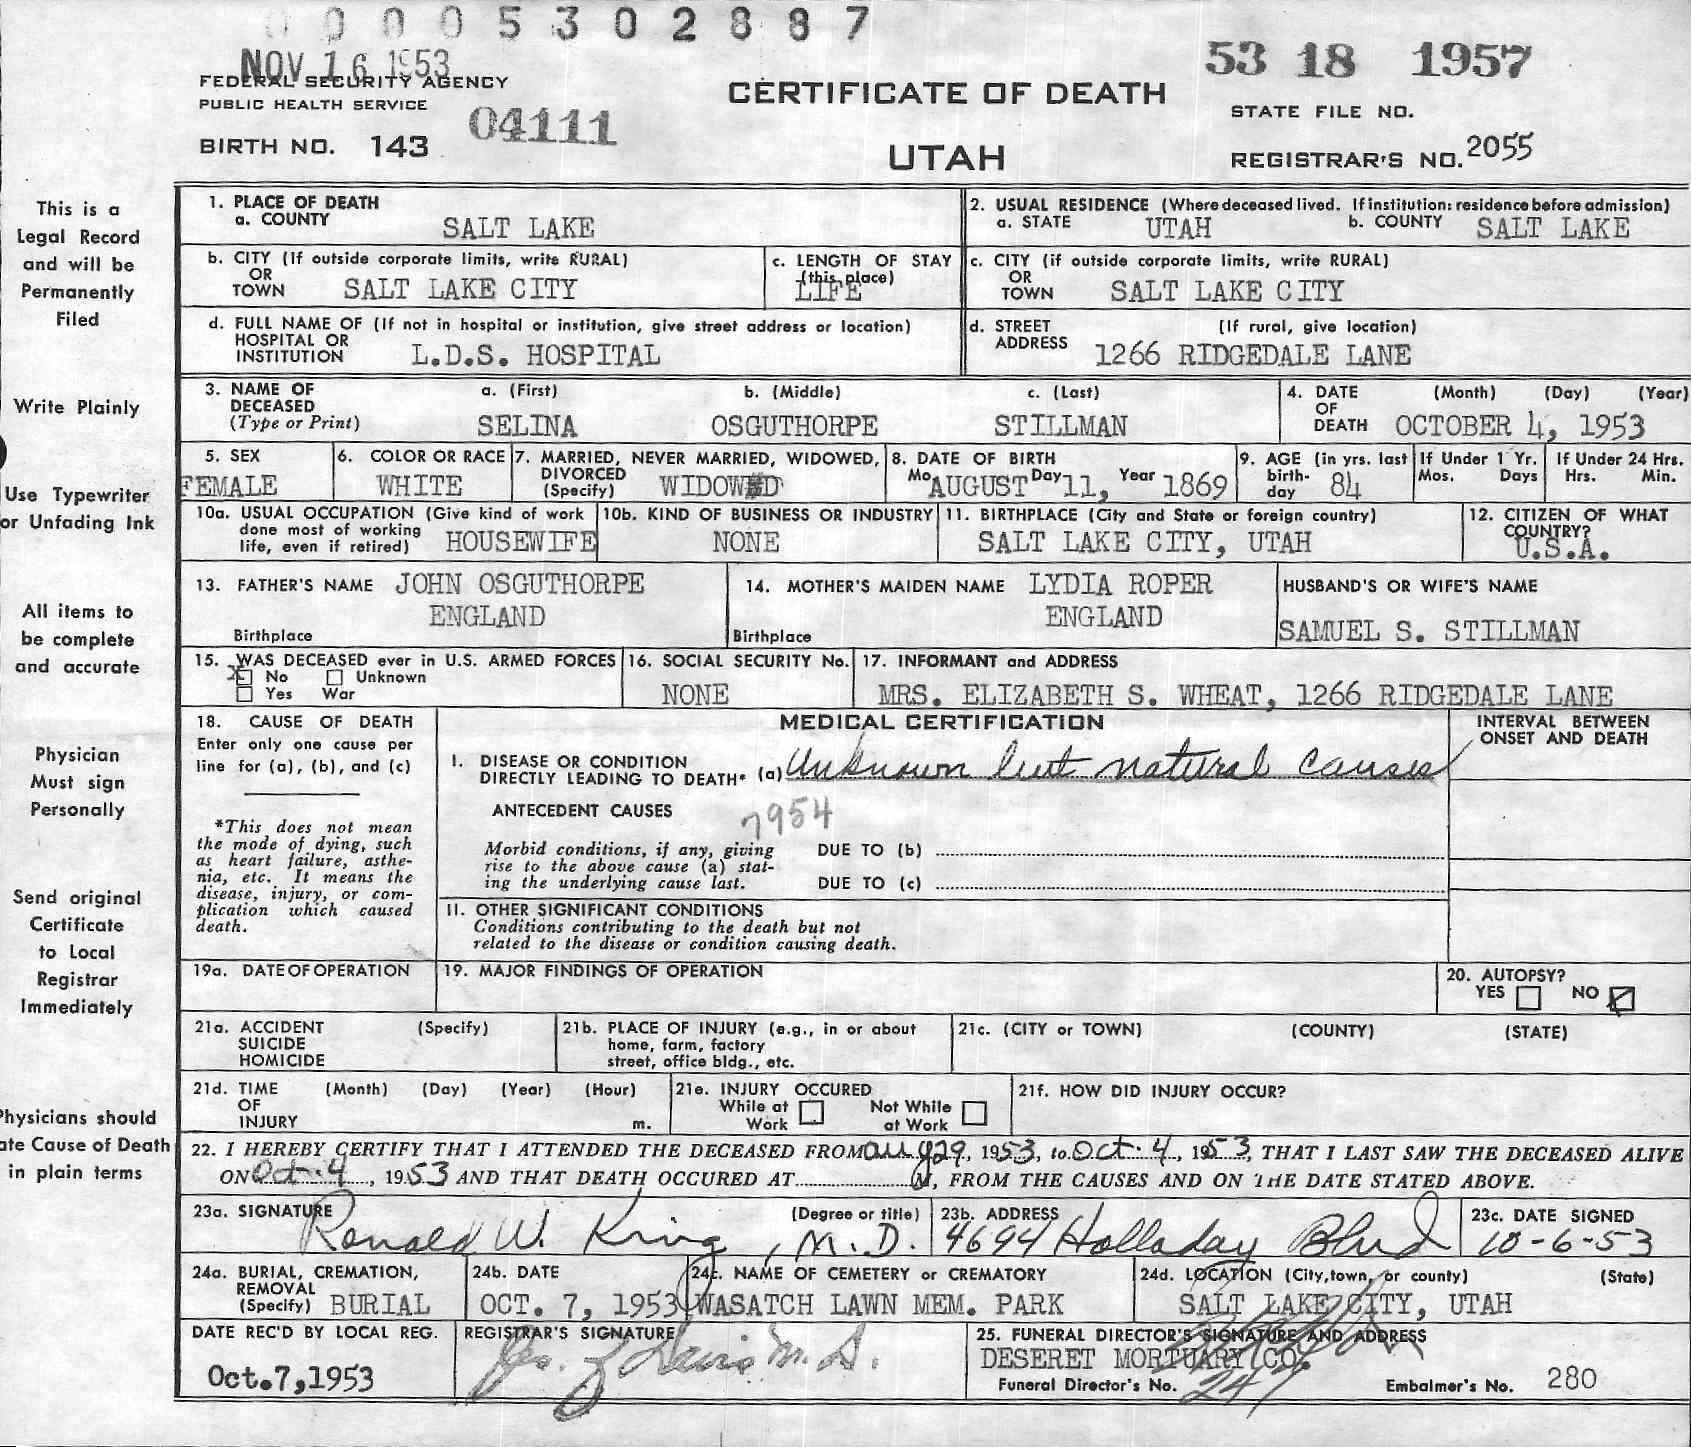 0 0 0 0 5 3 0 2 8 8 7
NOV 16 1953
53 18 1957
FEDERAL SECURITY AGENCY
PUBLIC HEALTH SERVICE
CERTIFICATE OF DEATH
STATE FILE NO.
BIRTH NO. 143 04111
UTAH
REGISTRAR'S NO. 2055
This is a
Legal Record
and will be
Permanently
Filed
Write Plainly
Use Typewriter
or Unfading Ink
All items to
be complete
and accurate
Physician
Must sign
Personally
Send original
Certificate
to Local
Registrar
Immediately
Physicians should
ate Cause of Death
in plain terms
1. PLACE OF DEATH
a. COUNTY SALT LAKE
2. USUAL RESIDENCE (Where deceased lived. If institution: residence before admission)
a. STATE UTAH b. COUNTY SALT LAKE
b. CITY (If outside corporate limits, write RURAL)
OR
TOWN SALT LAKE CITY
c. LENGTH OF STAY
(this place)
LIFE
c. CITY (if outside corporate limits, write RURAL)
OR
TOWN SALT LAKE CITY
d. FULL NAME OF (If not in hospital or institution, give street address or location)
HOSPITAL OR
INSTITUTION L.D.S. HOSPITAL
d. STREET (If rural, give location)
ADDRESS 1266 RIDGEDALE LANE
3. NAME OF a. (First) b. (Middle) c. (Last)
DECEASED
(Type or Print) SELINA OSGUTHORPE STILLMAN
4. DATE (Month) (Day) (Year)
OF
DEATH OCTOBER 4, 1953
5. SEX
FEMALE
6. COLOR OR RACE
WHITE
7. MARRIED, NEVER MARRIED, WIDOWED,
DIVORCED
(Specify) WIDOWED
8. DATE OF BIRTH
Mo. AUGUST Day 11, Year 1869
9. AGE (in yrs. last
birth-
day 84
If Under 1 Yr.
Mos. Days
If Under 24 Hrs.
Hrs. Min.
10a. USUAL OCCUPATION (Give kind of work
done most of working
life, even if retired) HOUSEWIFE
10b. KIND OF BUSINESS OR INDUSTRY
NONE
11. BIRTHPLACE (City and State or foreign country)
SALT LAKE CITY, UTAH
12. CITIZEN OF WHAT
COUNTRY?
U.S.A.
13. FATHER'S NAME JOHN OSGUTHORPE
ENGLAND
Birthplace
14. MOTHER'S MAIDEN NAME LYDIA ROPER
ENGLAND
Birthplace
HUSBAND'S OR WIFE'S NAME
SAMUEL S. STILLMAN
15. WAS DECEASED ever in U.S. ARMED FORCES
X No Unknown
Yes War
16. SOCIAL SECURITY No.
NONE
17. INFORMANT and ADDRESS
MRS. ELIZABETH S. WHEAT, 1266 RIDGEDALE LANE
18. CAUSE OF DEATH
Enter only one cause per
line for (a), (b), and (c)
*This does not mean
the mode of dying, such
as heart failure, asthe-
nia, etc. It means the
disease, injury, or com-
plication which caused
death.
MEDICAL CERTIFICATION
INTERVAL BETWEEN
ONSET AND DEATH
I. DISEASE OR CONDITION
DIRECTLY LEADING TO DEATH* (a) Unknown but natural causes
ANTECEDENT CAUSES
7954
Morbid conditions, if any, giving
rise to the above cause (a) stat-
ing the underlying cause last.
DUE TO (b)
DUE TO (c)
II. OTHER SIGNIFICANT CONDITIONS
Conditions contributing to the death but not
related to the disease or condition causing death.
19a. DATE OF OPERATION
19. MAJOR FINDINGS OF OPERATION
20. AUTOPSY?
YES NO
21a. ACCIDENT (Specify)
SUICIDE
HOMICIDE
21b. PLACE OF INJURY (e.g., in or about
home, farm, factory
street, office bldg., etc.
21c. (CITY or TOWN) (COUNTY) (STATE)
21d. TIME (Month) (Day) (Year) (Hour)
OF
INJURY m.
21e. INJURY OCCURED
While at Work Not While at Work
21f. HOW DID INJURY OCCUR?
22. I HEREBY CERTIFY THAT I ATTENDED THE DECEASED FROM Aug 29, 1953, to Oct. 4, 1953, THAT I LAST SAW THE DECEASED ALIVE
ON Oct. 4, 1953 AND THAT DEATH OCCURED AT M, FROM THE CAUSES AND ON THE DATE STATED ABOVE.
23a. SIGNATURE (Degree or title)
Ronald W. King, M.D.
23b. ADDRESS
4694 Holladay Blvd
23c. DATE SIGNED
10-6-53
24a. BURIAL, CREMATION,
REMOVAL
(Specify) BURIAL
24b. DATE
OCT. 7, 1953
24c. NAME OF CEMETERY or CREMATORY
WASATCH LAWN MEM. PARK
24d. LOCATION (City, town, or county) (State)
SALT LAKE CITY, UTAH
DATE REC'D BY LOCAL REG.
Oct. 7, 1953
REGISTRAR'S SIGNATURE
25. FUNERAL DIRECTOR'S SIGNATURE AND ADDRESS
DESERET MORTUARY CO.
Funeral Director's No. 247 Embalmer's No. 280